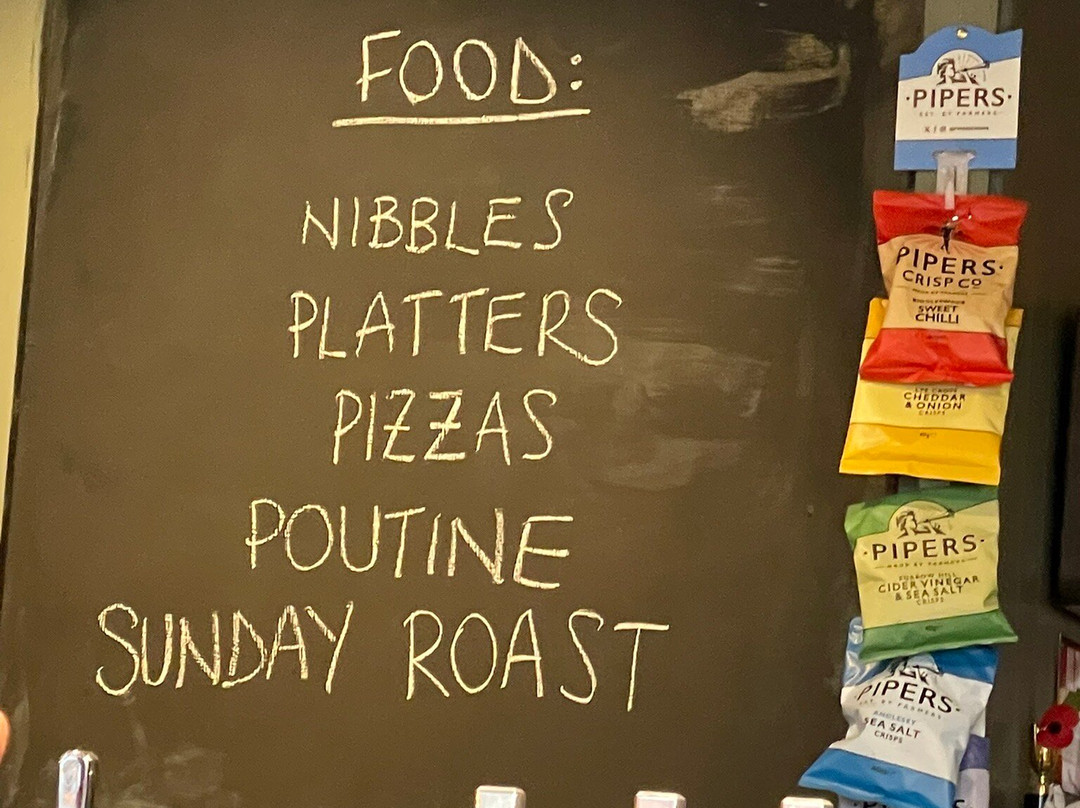 FOOD:
NIBBLES
PLATTERS
PIZZAS
POUTINE
SUNDAY ROAST
·PIPERS·
EST. BY FARMERS
PIPERS·
CRISP Co
SWEET
CHILLI
CHEDDAR
& ONION
CRISPS
·PIPERS·
MADE BY FARMERS
BURROW HILL
CIDER VINEGAR
& SEA SALT
CRISPS
PIPERS·
BY FARMERS
ANGLESEY
SEA SALT
CRISPS